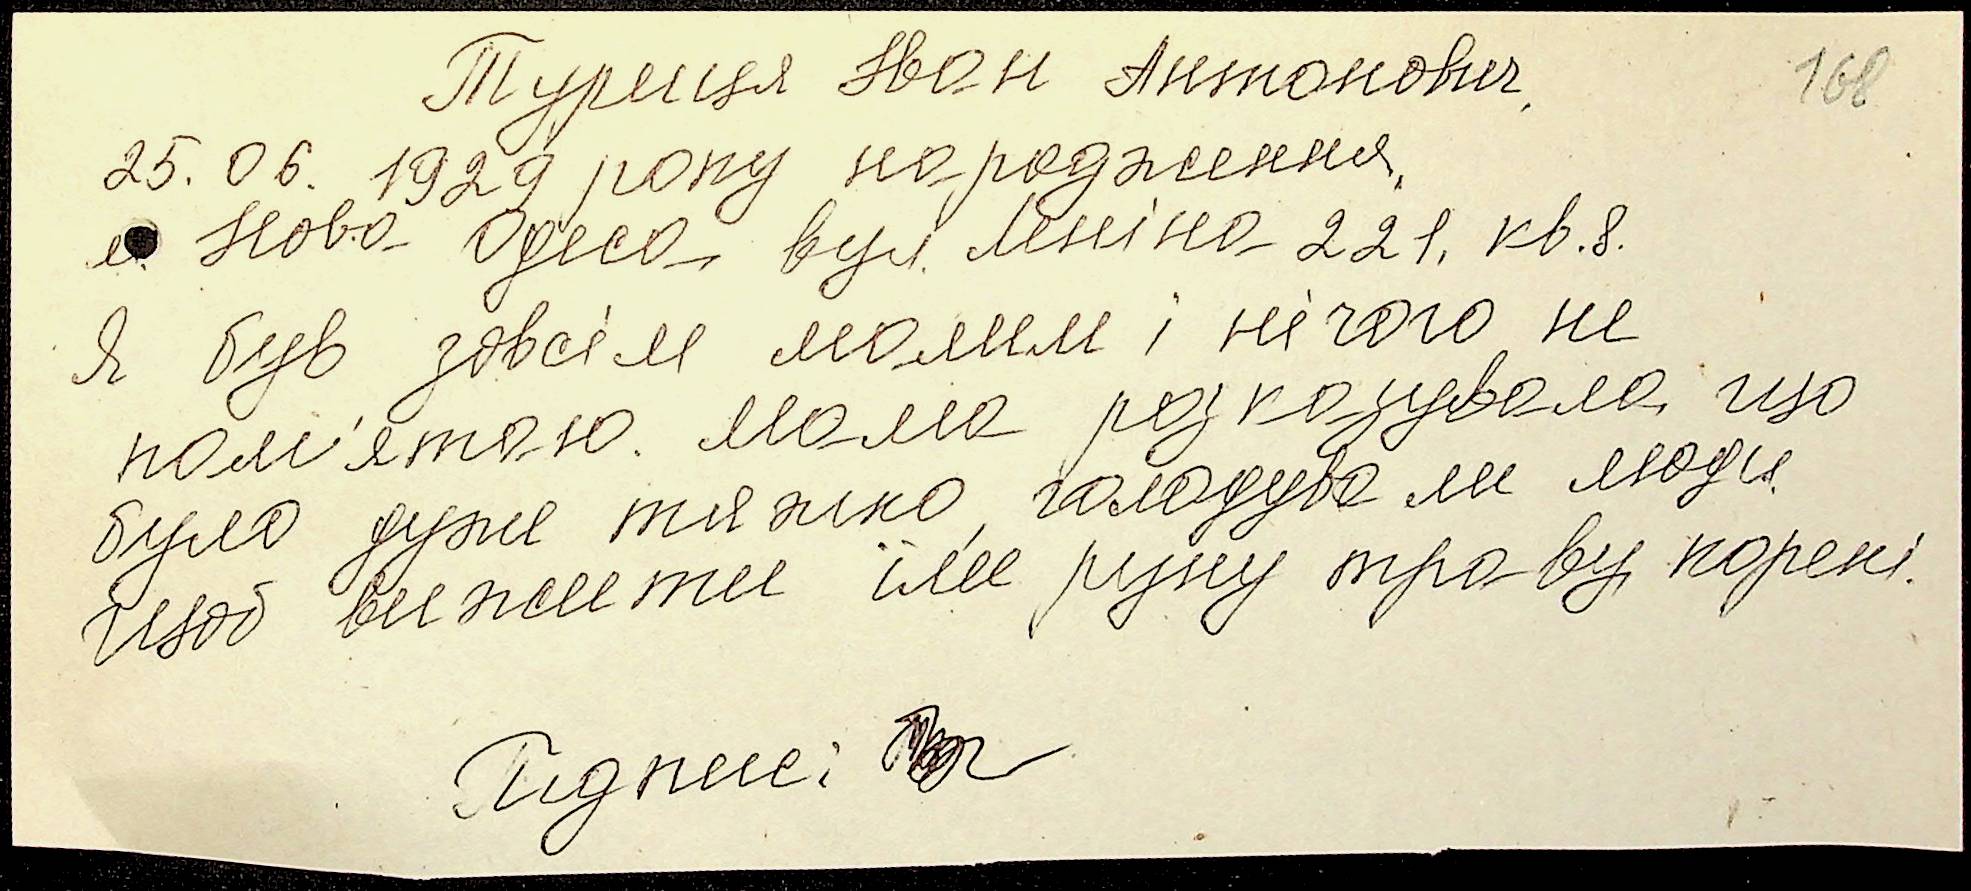 Туриця Іван Антонович,
168
25.06.1929 року народження,
м. Нова Одеса, вул. Леніна 221, кв. 8.
Я був зовсім малим і нічого не
пам'ятаю. Мама розказувала, що
було дуже тяжко, голодували люди.
Щоб вижити їли руку траву, корені.
Підпис: